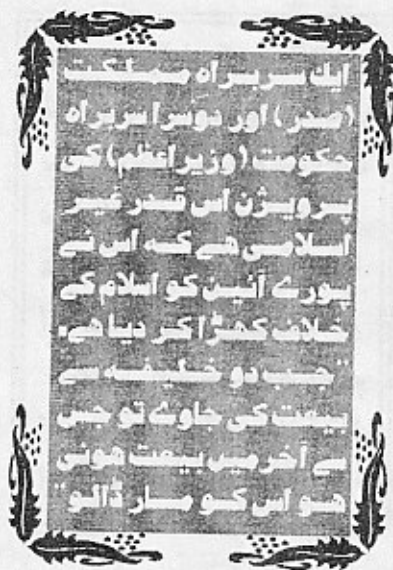 ایک سربراہ مملکت
(صدر) اور دوسرا سربراہ
حکومت (وزیراعظم) کی
پرویژن اس قدر غیر
اسلامی ہے کہ اس نے
پورے آئین کو اسلام کے
خلاف کھڑا کر دیا ہے۔
"جب دو خلیفہ سے
بیعت کی جاوے تو جس
سے آخر میں بیعت ہوئی
ہو اس کو مار ڈالو"